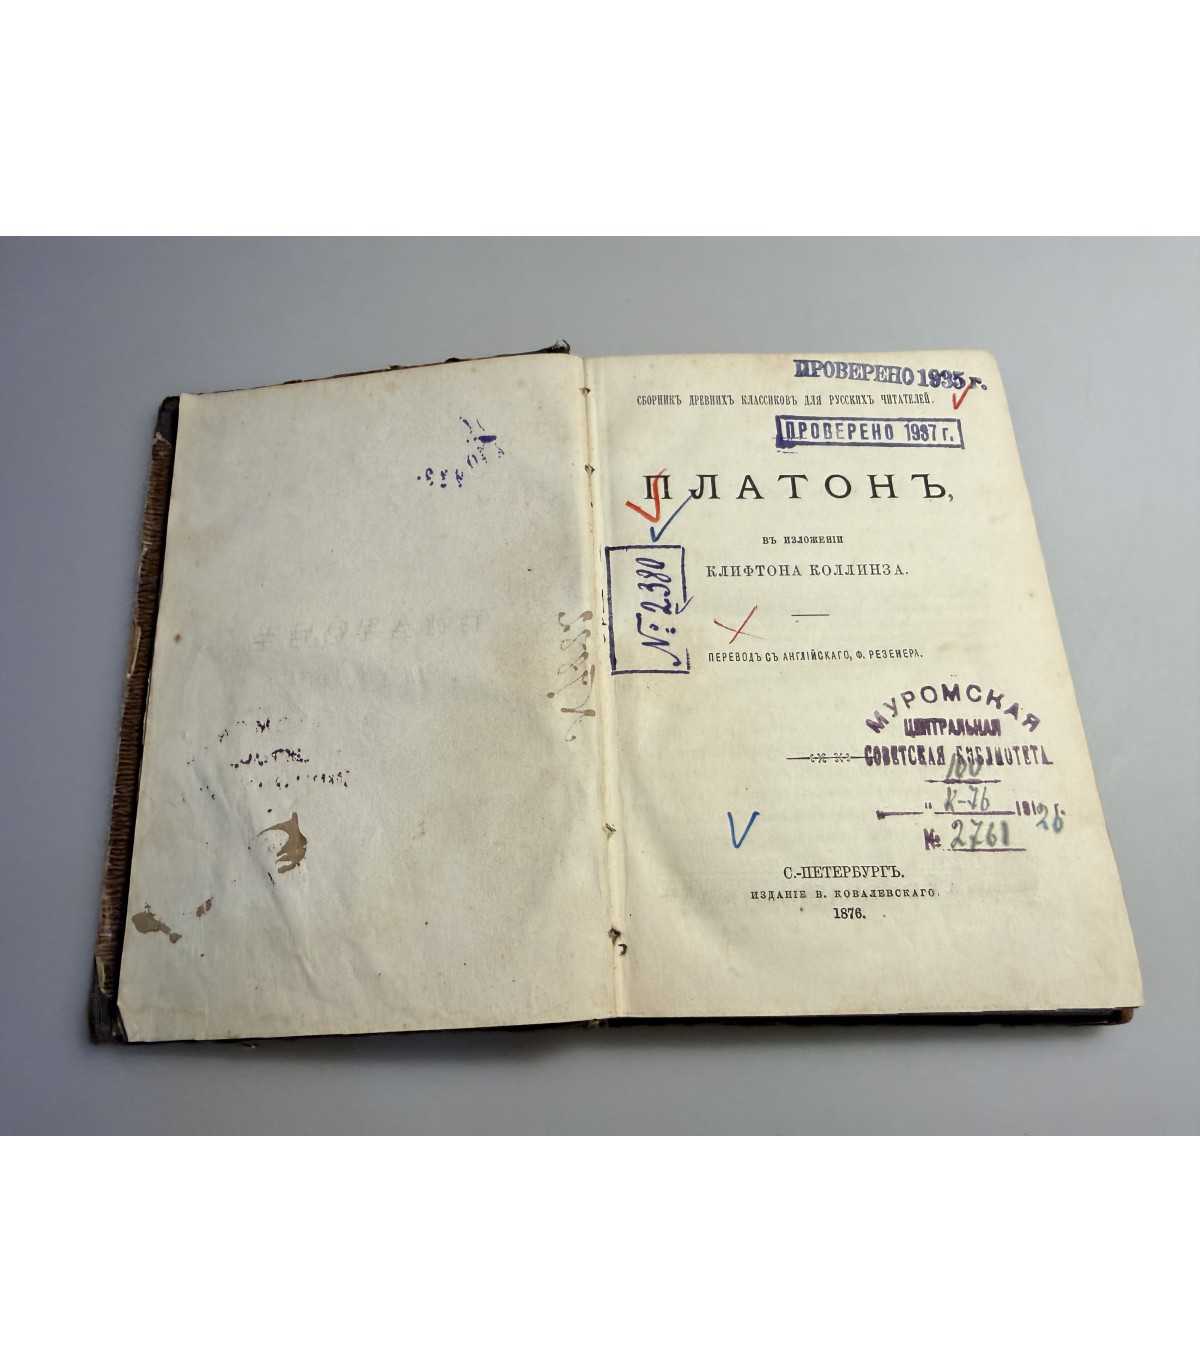 ПРОВЕРЕНО 1935 г.
СБОРНИКЪ ДРЕВНИХЪ КЛАССИКОВЪ ДЛЯ РУССКИХЪ ЧИТАТЕЛЕЙ.
ПРОВЕРЕНО 1937 г.
ПЛАТОНЪ,
ВЪ ИЗЛОЖЕНІИ
КЛИФТОНА КОЛЛИНЗА.
№: 2380
ПЕРЕВОДЪ СЪ АНГЛІЙСКАГО, Ф. РЕЗЕНЕРА.
МУРОМСКАЯ
ЦЕНТРАЛЬНАЯ
СОВЕТСКАЯ БИБЛИОТЕКА
100
" К-76 191 26 г.
№ 2761
С.-ПЕТЕРБУРГЪ.
ИЗДАНІЕ В. КОВАЛЕВСКАГО.
1876.